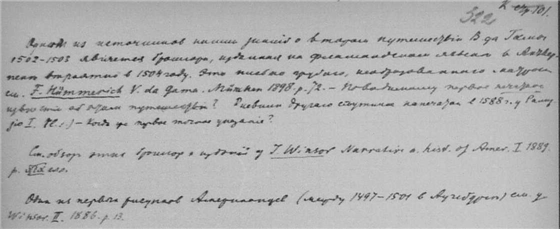 322
Одним из источников наших знаний о втором путешествии В. да Гамы
1502-1503 является брошюра, изданная на фламандском языке в Антвер
пене в 1504 году. Это письмо грубого, необразованного матроса
см. F. Hümmerich V. da Gama. München 1898. p. По-видимому первое печатное
известие об этом путешествии? Дневник другого спутника напечатан в 1588 г. у Раму
I. — Когда первое точное указание?
См. обзор этих брошюр и изданий у J. Winsor Narrative a. hist. of Amer. I 1889.
p. XIX
Один из первых рисунков Американцев (между 1497-1501 в Аугсбурге) см. у
Winsor. II. 1886. p. 19.